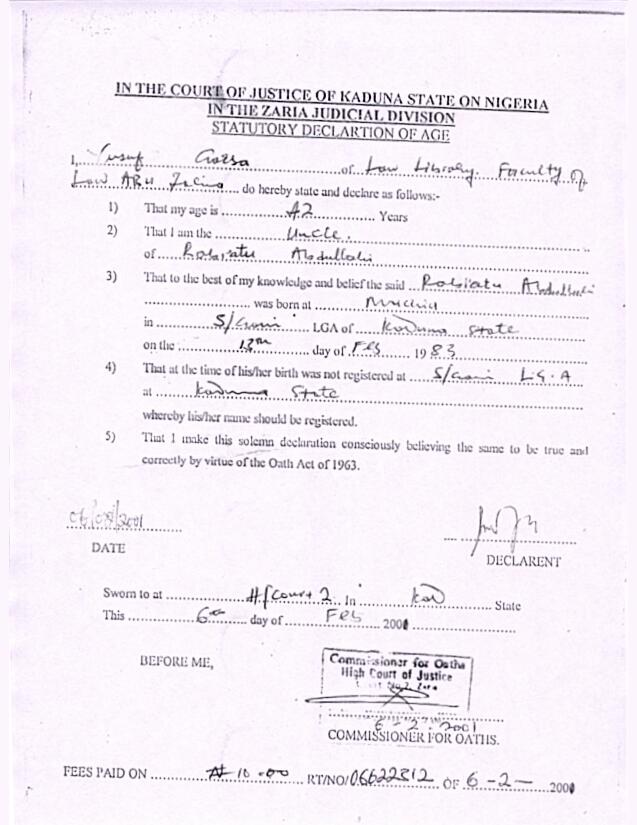 IN THE COURT OF JUSTICE OF KADUNA STATE ON NIGERIA
IN THE ZARIA JUDICIAL DIVISION
STATUTORY DECLARTION OF AGE
I, Yusuf ... of Law Library, Faculty of
Law ABU Zaria ... do hereby state and declare as follows:-
1) That my age is ... 42 ... Years
2) That I am the ... Uncle.
of ... Rabiatu Abdullahi
3) That to the best of my knowledge and belief the said ... Rabiatu Abdullahi
... was born at ...
in ... LGA of ... Kaduna State
on the ... 13th ... day of Feb ... 1983
4) That at the time of his/her birth was not registered at ... L.G.A
at ... Kaduna State
whereby his/her name should be registered.
5) That I make this solemn declaration consciously believing the same to be true and
correctly by virtue of the Oath Act of 1963.
DATE
DECLARENT
Sworn to at ... H/Court 2 In ... Kad ... State
This ... 6th ... day of ... Feb ... 2001
BEFORE ME,
Commissioner for Oaths
High Court of Justice
6-2-2001
COMMISSIONER FOR OATHS.
FEES PAID ON ... ₦ 10.00 ... RT/NO/06622812 OF 6-2- 2001